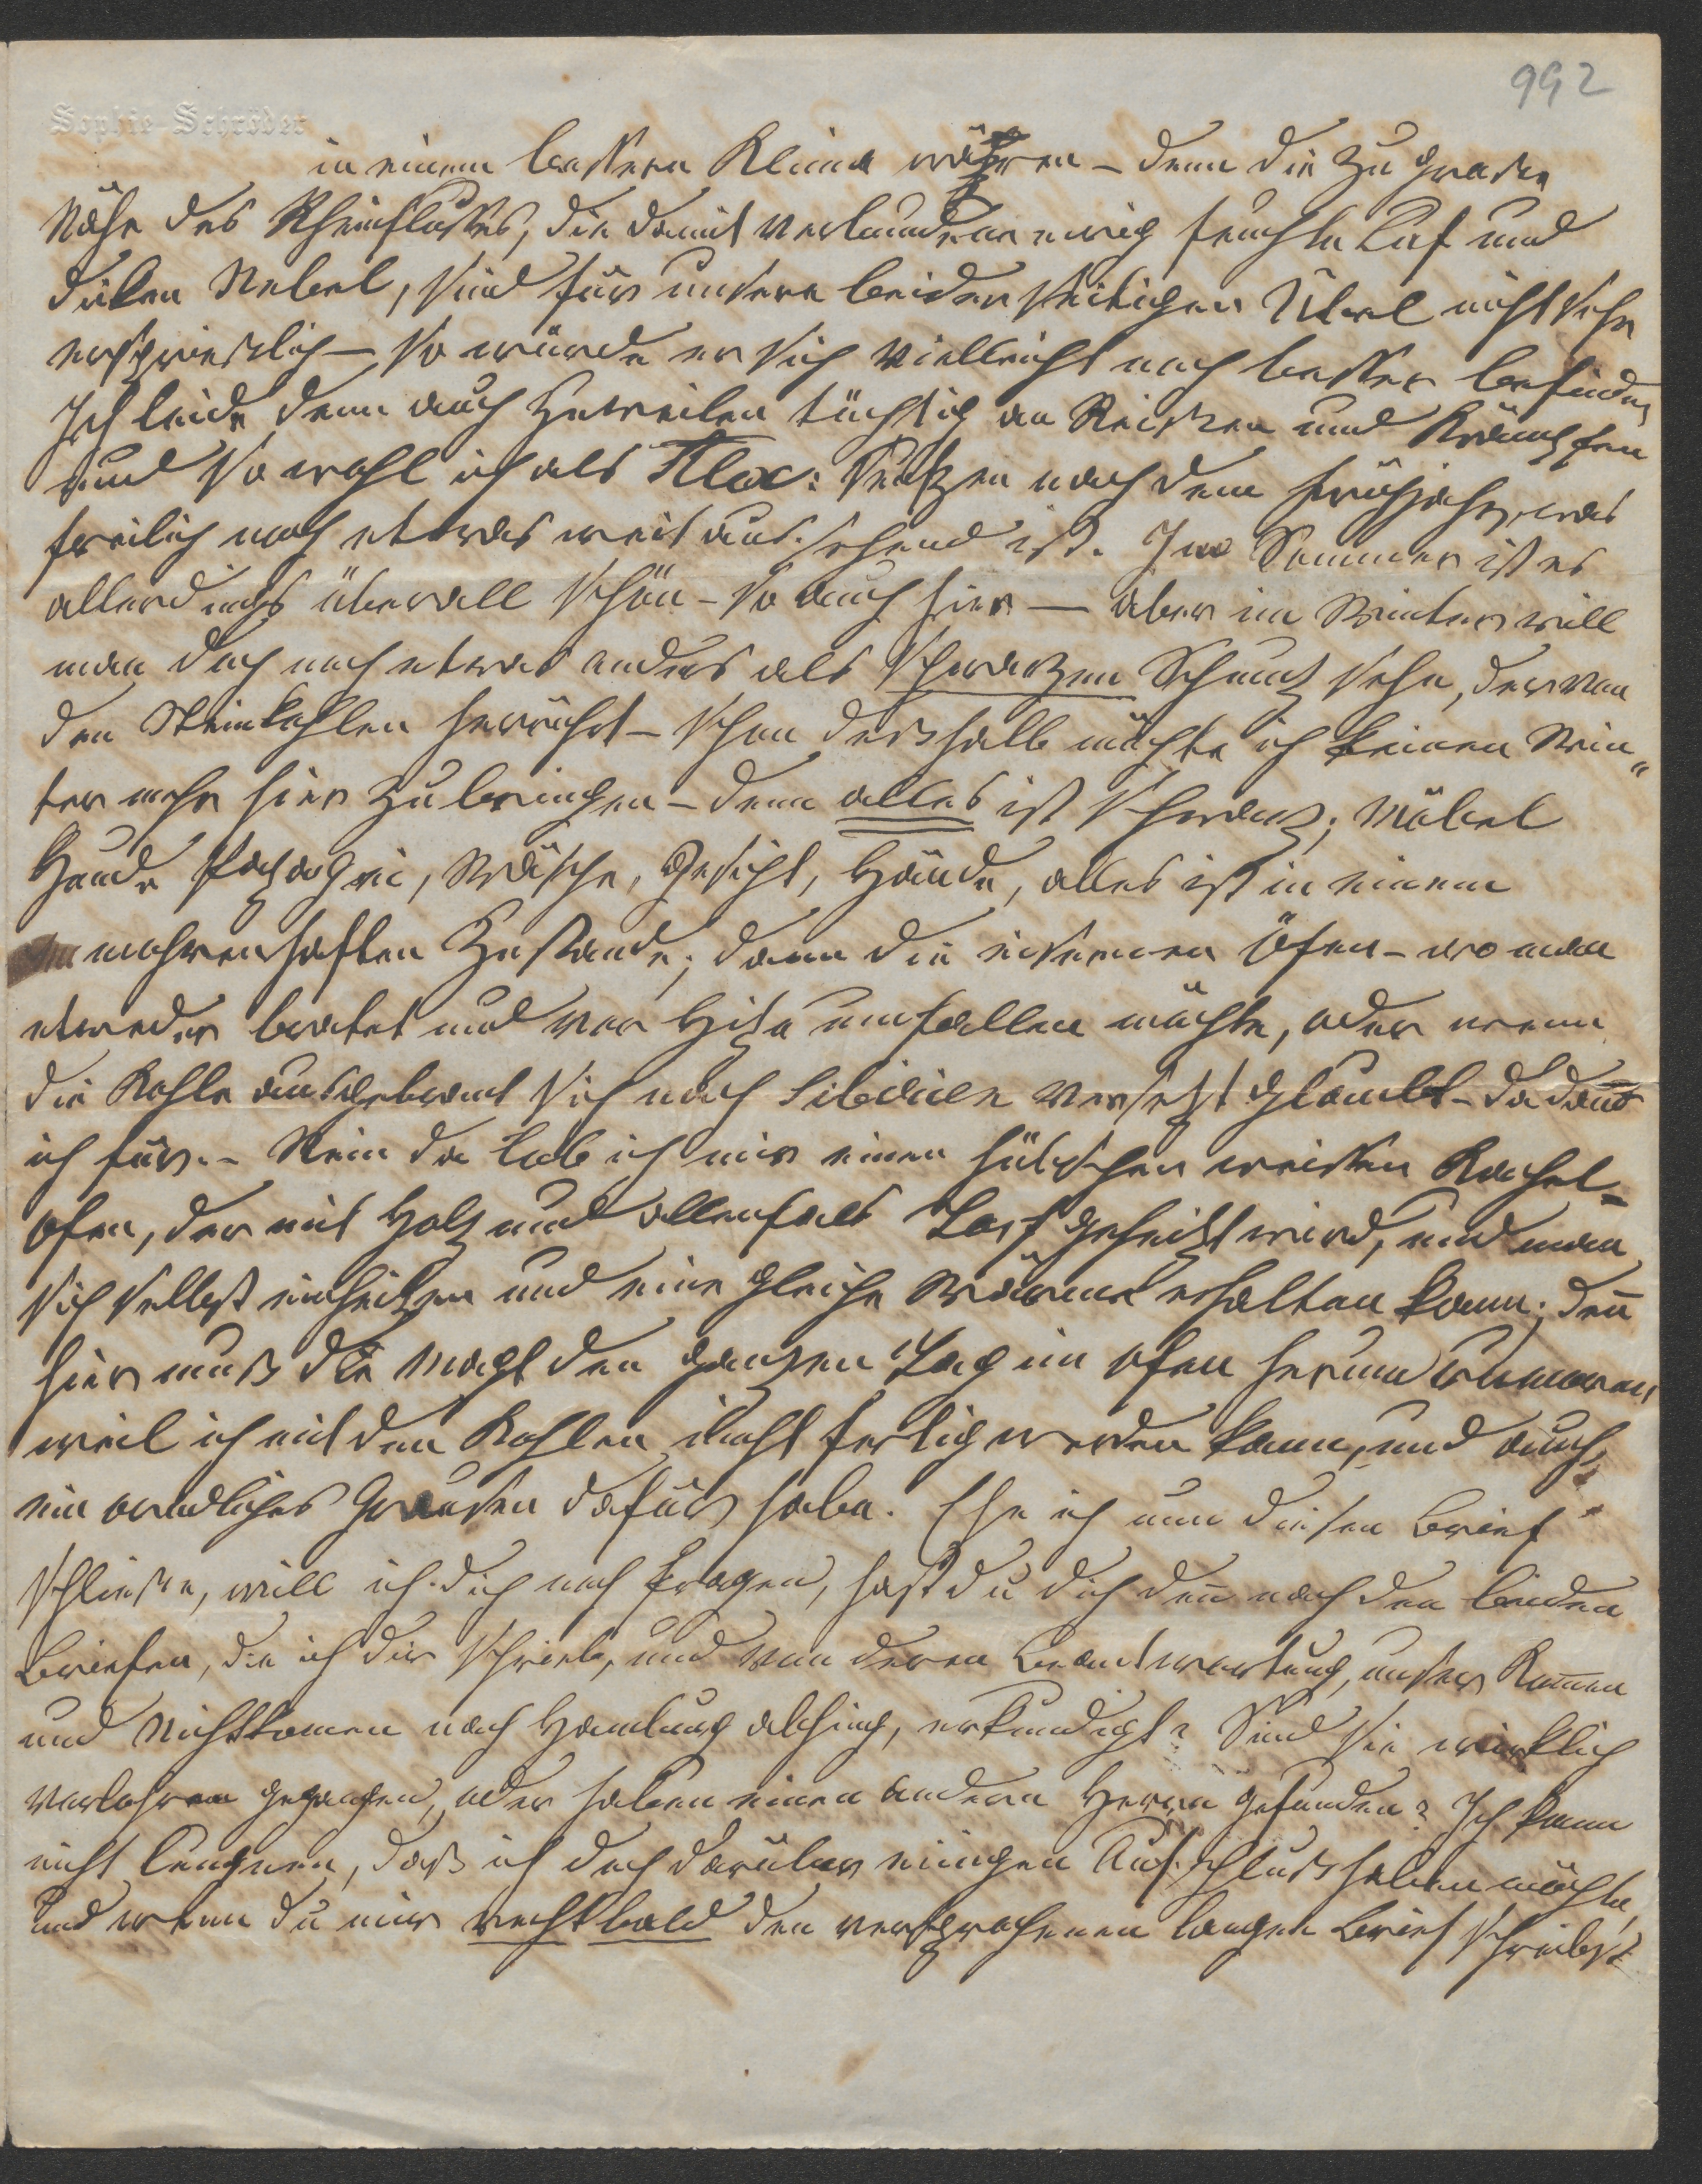 992
Sophie Schröder
in einem bessern Klima wären – denn die zu große
Nähe des Rheinflußes, die damit verbundene ewig feuchte Luf und
diken Nebel, sind für unsere beiderseitigen Übel nicht sehr
ersprieslich – so würde er sich vielleicht noch besser befinden
Ich leide denn auch zuweilen tüchtig an Reißen und Krämpfen
und so wohl ich als Alex: seufzen nach dem Frühjahr, was
freilich noch etwas weit aussehend ist. Im Sommer ist es
allerdings überall schön – so auch hier – aber im Winter will
man doch noch etwas anders als schwarzen Schmutz sehn, der von
den Steinkohlen herrührt – schon desshalb möchte ich keinen Win„
ter mehr hier zubringen – denn alles ist schwarz; Möbel
Hunde Papagei, Wäsche, Gesicht, Hände, alles ist in einem
mohrenhaften Zustande; dann die eisernen Öfen – wo man
etweder bratet und vor Hitze umfallen möchte, oder wenn
die Kohle ausgebrant sich nach Sibirien versetzt glaubt – da dank
ich für. – Nein da lob ich mir einen hübschen weissen Kachel=
ofen, der mit Holz und allenfals Torf geheitzt wird, und man
sich selbst einheitzen und eine gleiche Wärme erhalten kann; deñ
hier muß die Magd den ganzen Tag im Ofen herum rumoren,
weil ich mit den Kohlen nicht fertig werden kann, und auch
ein ordliches Grausen dafür habe. Ehe ich nun diesen Brief
schließe, will ich dich noch fragen, hast du dich deñ nach den beiden
Briefen, die ich dir schrieb, und von deren Beantwortung, unser Kom̄en
und Nichtkomen nach Hamburg abhing, erkundigt? Sind sie wirklich
verlohren gegangen, oder haben einen andern Herrn gefunden? Ich kann
nicht leugnen, daß ich doch darüber einigen Aufschluß haben möchte,
und wenn du mir recht bald den versprochenen langen Brief schreibst